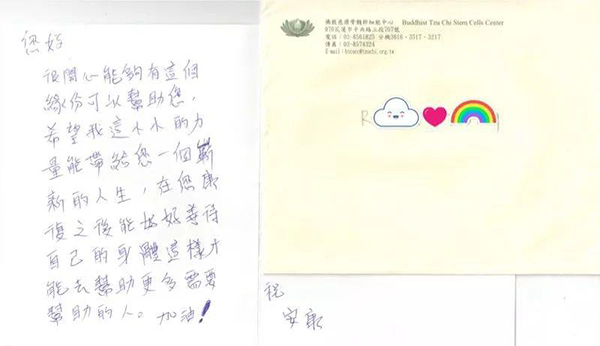 您好
很開心能夠有這個
緣份可以幫助您,
希望我這小小的力
量能帶給您一個嶄
新的人生,在您康
復之後能好好善待
自己的身體這樣才
能去幫助更多需要
幫助的人。加油!
佛教慈濟骨髓幹細胞中心 Buddhist Tzu Chi Stem Cells Center
970花蓮市中央路三段707號
電話:03-8561825 分機3616．3517．3217
傳真:03-8574324
E-mail:btcscc@tzuchi.org.tw
R
祝
安康